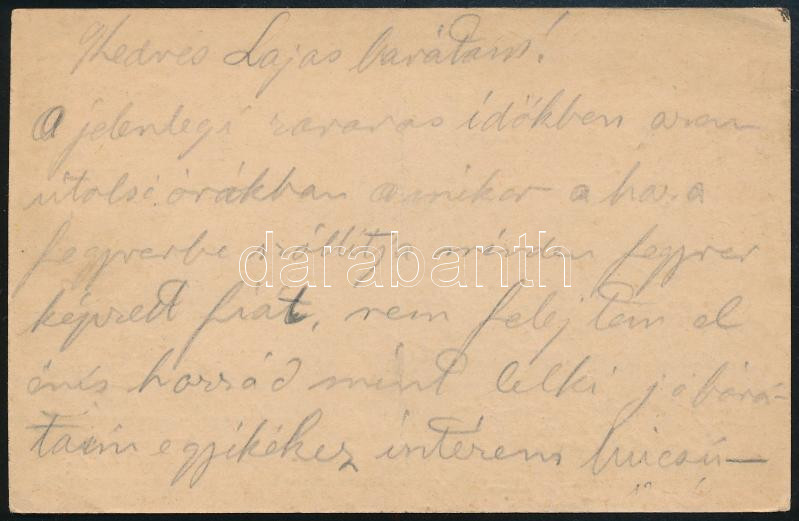 Kedves Lajos barátam!
A jelenlegi zavaros időkben azon
utolsó órákban amikor a haza
fegyverbe szóllitja minden fegyver
képzett fiát, nem felejtem el
énis hozzád mint lelki jó bará-
taim egyikéhez intézem búcsú-
darabanth